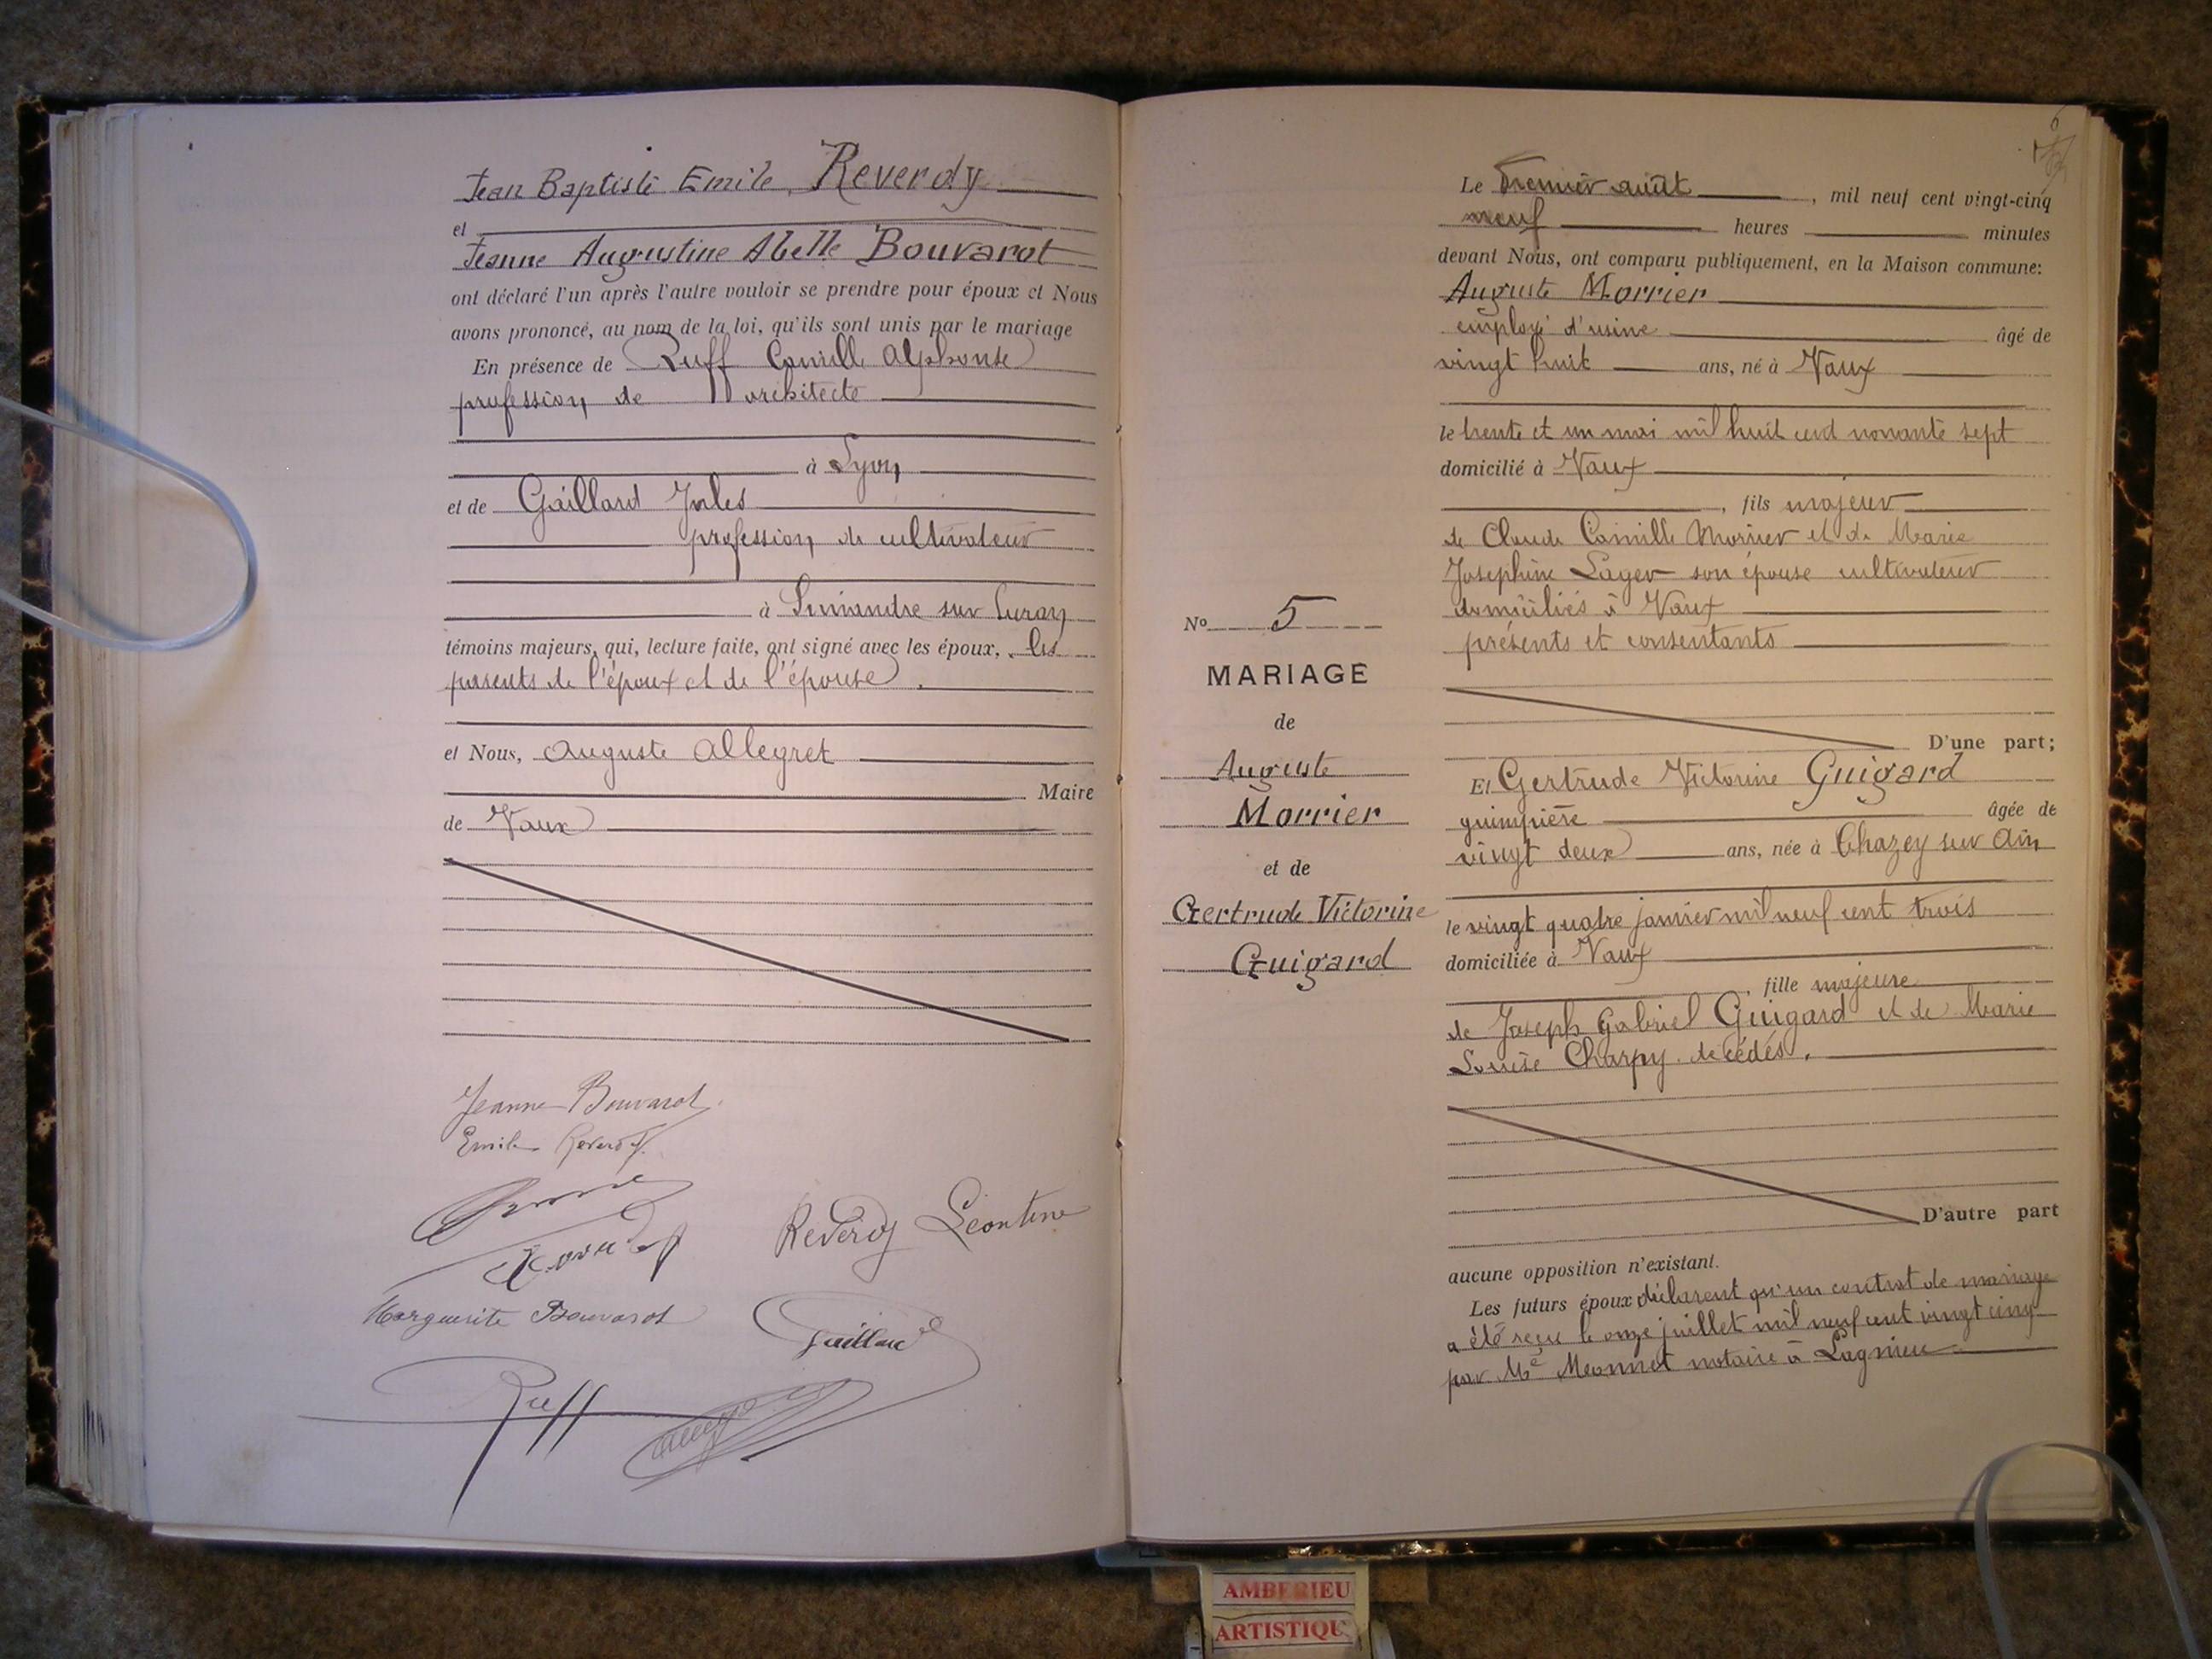 Jean Baptiste Emile Reverdy
et
Jeanne Augustine Abelle Bouvarot
ont déclaré l'un après l'autre vouloir se prendre pour époux et Nous
avons prononcé, au nom de la loi, qu'ils sont unis par le mariage
En présence de Ruff Camille Alphonse
profession de architecte
à Lyon
et de Gaillard Jules
profession de cultivateur
à Simandre sur Suran
témoins majeurs, qui, lecture faite, ont signé avec les époux, les
parents de l'époux et de l'épouse.
et Nous, Auguste Allegret
Maire
de Vaux
Jeanne Bouvarot
Emile Reverdy
Reverdy Léontine
Marguerite Bouvarot
Gaillard
Ruff
6
Le Premier août, mil neuf cent vingt-cinq
neuf heures minutes
devant Nous, ont comparu publiquement, en la Maison commune:
Auguste Morrier
employé d'usine âgé de
vingt huit ans, né à Vaux
le trente et un mai mil huit cent nonante sept
domicilié à Vaux
, fils majeur
de Claude Camille Morrier et de Marie
Joséphine Layer son épouse cultivateur
domiciliés à Vaux
présents et consentants
D'une part;
Nº 5
MARIAGE
de
Auguste
Morrier
et de
Gertrude Victorine
Guigard
Et Gertrude Victorine Guigard
guimpière âgée de
vingt deux ans, née à Chazey sur Ain
le vingt quatre janvier mil neuf cent trois
domiciliée à Vaux
, fille majeure
de Joseph Gabriel Guigard et de Marie
Louise Charpy décédés.
D'autre part
aucune opposition n'existant.
Les futurs époux déclarent qu'un contrat de mariage
a été reçu le onze juillet mil neuf cent vingt cinq
par Me Meonnet notaire à Lagnieu
AMBERIEU
ARTISTIQU